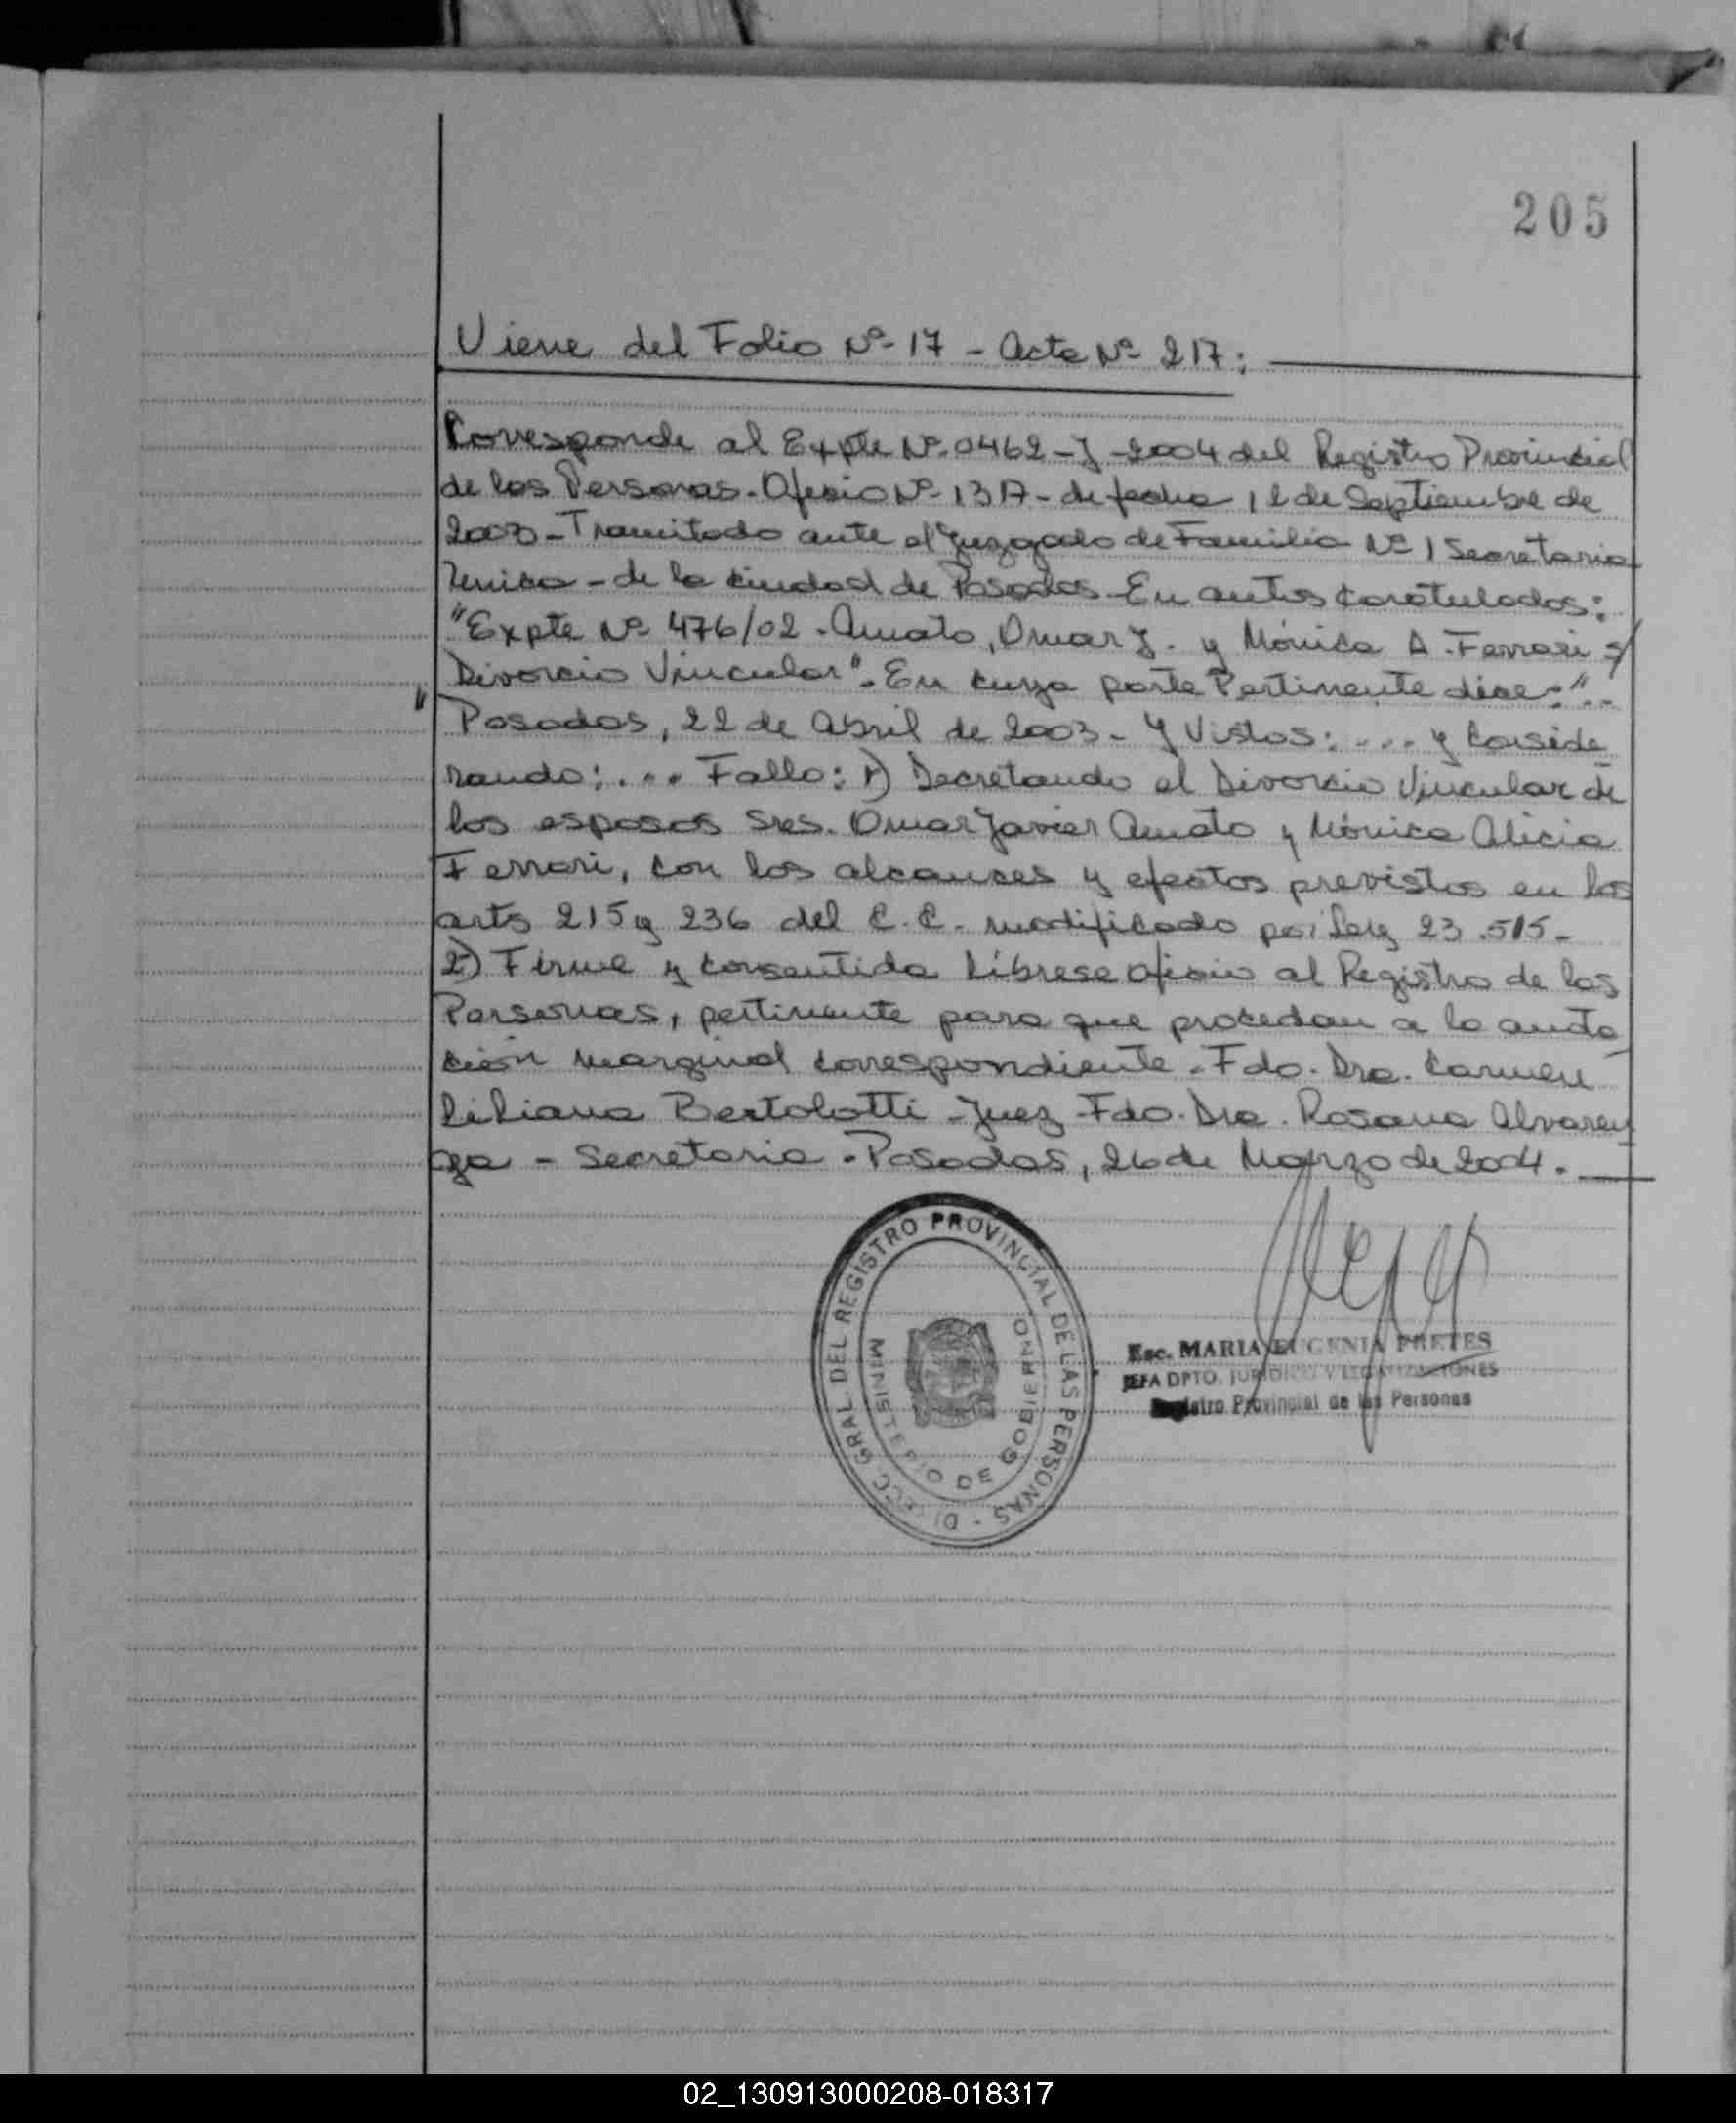 205
Viene del Folio Nº 17 - Acta Nº 217:
Corresponde al Expte Nº 0462-J-2004 del Registro Provincial
de las Personas. Oficio Nº 1317 - de fecha 12 de Septiembre de
2003 - Tramitado ante el Juzgado de Familia Nº 1 Secretaria
Unica - de la ciudad de Posadas - En autos caratulados:
"Expte Nº 476/02 - Amato, Omar J. y Mónica A. Ferrari s/
Divorcio Vincular". En cuya parte Pertinente dice: "..
" Posadas, 22 de Abril de 2003 - Y Vistos: .... y Conside
rando: .... Fallo: 1) Decretando el Divorcio Vincular de
los esposos Sres. Omar Javier Amato y Mónica Alicia
Ferrari, con los alcances y efectos previstos en los
arts 215 y 236 del C.C. modificado por Ley 23.515-
2) Firme y consentida Líbrese oficio al Registro de las
Personas, pertinente para que procedan a la anota
ción marginal correspondiente. Fdo. Dra. Carmen
Liliana Bertolotti - Juez - Fdo. Dra. Rosana Alvaren
ga - Secretaria - Posadas, 26 de Marzo de 2004.
DIRECC. GRAL DEL REGISTRO PROVINCIAL DE LAS PERSONAS -
MINISTERIO DE GOBIERNO
Esc. MARIA EUGENIA PRETES
JEFA DPTO. JURIDICO Y LEGALIZACIONES
Registro Provincial de las Personas
02_130913000208-018317